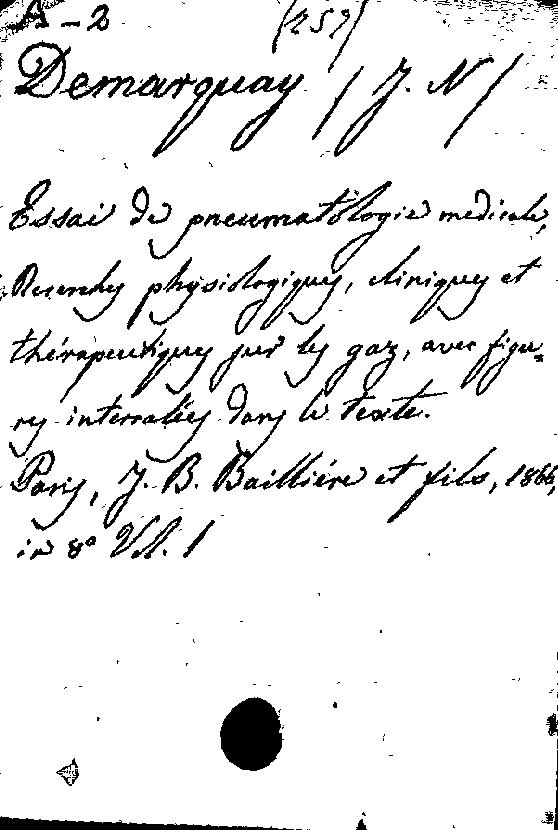 A-2 (257)
Demarquay (J. N)
Essai de pneumatologie medicale,
Recerches physiologiques, cliniques et
thérapeutiques sur les gaz, avec figu-
res intercalées dans le texte.
Paris, J. B. Baillière et fils, 1866,
in 8° Vol. 1